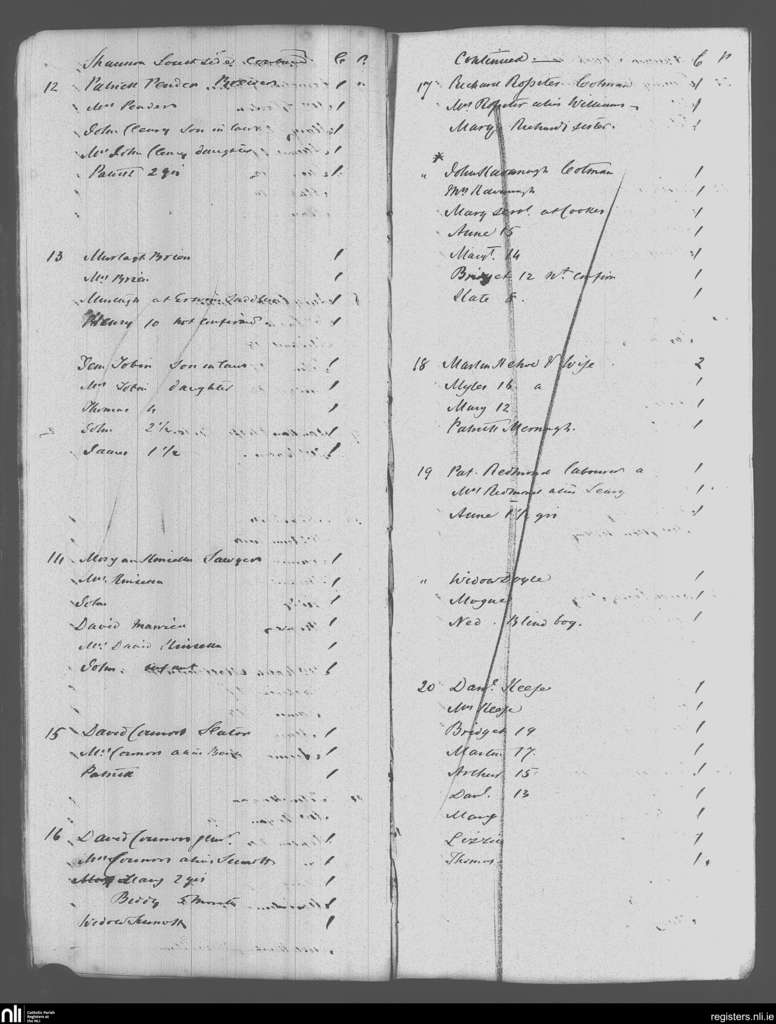 Shannon South side C P
12 Patrick Pender 1
Mrs Pender 1
John Cleary son in law 1
Mrs John Cleary daughter 1
Patrick 2 yrs 1
13 Murtagh Brien 1
Mrs Brien 1
Murtagh at 1
Henry 10 not confirmed 1
Jem Tobin son in law 1
Mrs Tobin daughter 1
Thomas 4 1
John 2 1/2 1
Isaac 1 1/2 1
14 Kinsella Sawyer 1
Mrs Kinsella 1
John 1
David married 1
Mrs David Kinsella 1
John infant 1
15 David Connors Slator 1
Mrs Connors alias 1
Patrick 1
16 David Connors Junr. 1
Mrs Connors alias Sinnott 1
2 yrs 1
Biddy 5 months 1
Widow Sinnott 1
Continued C P
17 Richard Rossiter Cotman 1
Mrs Rossiter alias Williams 1
Mary Richard's sister. 1
" John Kavanagh Cotman 1
Mrs Kavanagh 1
Mary servt. at Cookes 1
Anne 15 1
Margt. 14 1
Bridget 12 nt. confirm 1
Kate 8. 1
18 Martin Kehoe & Wife 2
Myles 16 a 1
Mary 12 1
Patrick Mernagh. 1
19 Pat. Redmond labourer a 1
Mrs Redmond alias Leary 1
Anne 1 1/2 yrs 1
" Widow Doyle 1
Mogue 1
Ned . Blind boy. 1
20 Danl. Keefe 1
Mrs Keefe 1
Bridget 19 1
Martin 17. 1
Arthur 15. 1
Danl. 13 1
Mary 1
Lizzie 1
Thomas 1
nli Catholic Parish
Registers at
the NLI
registers.nli.ie